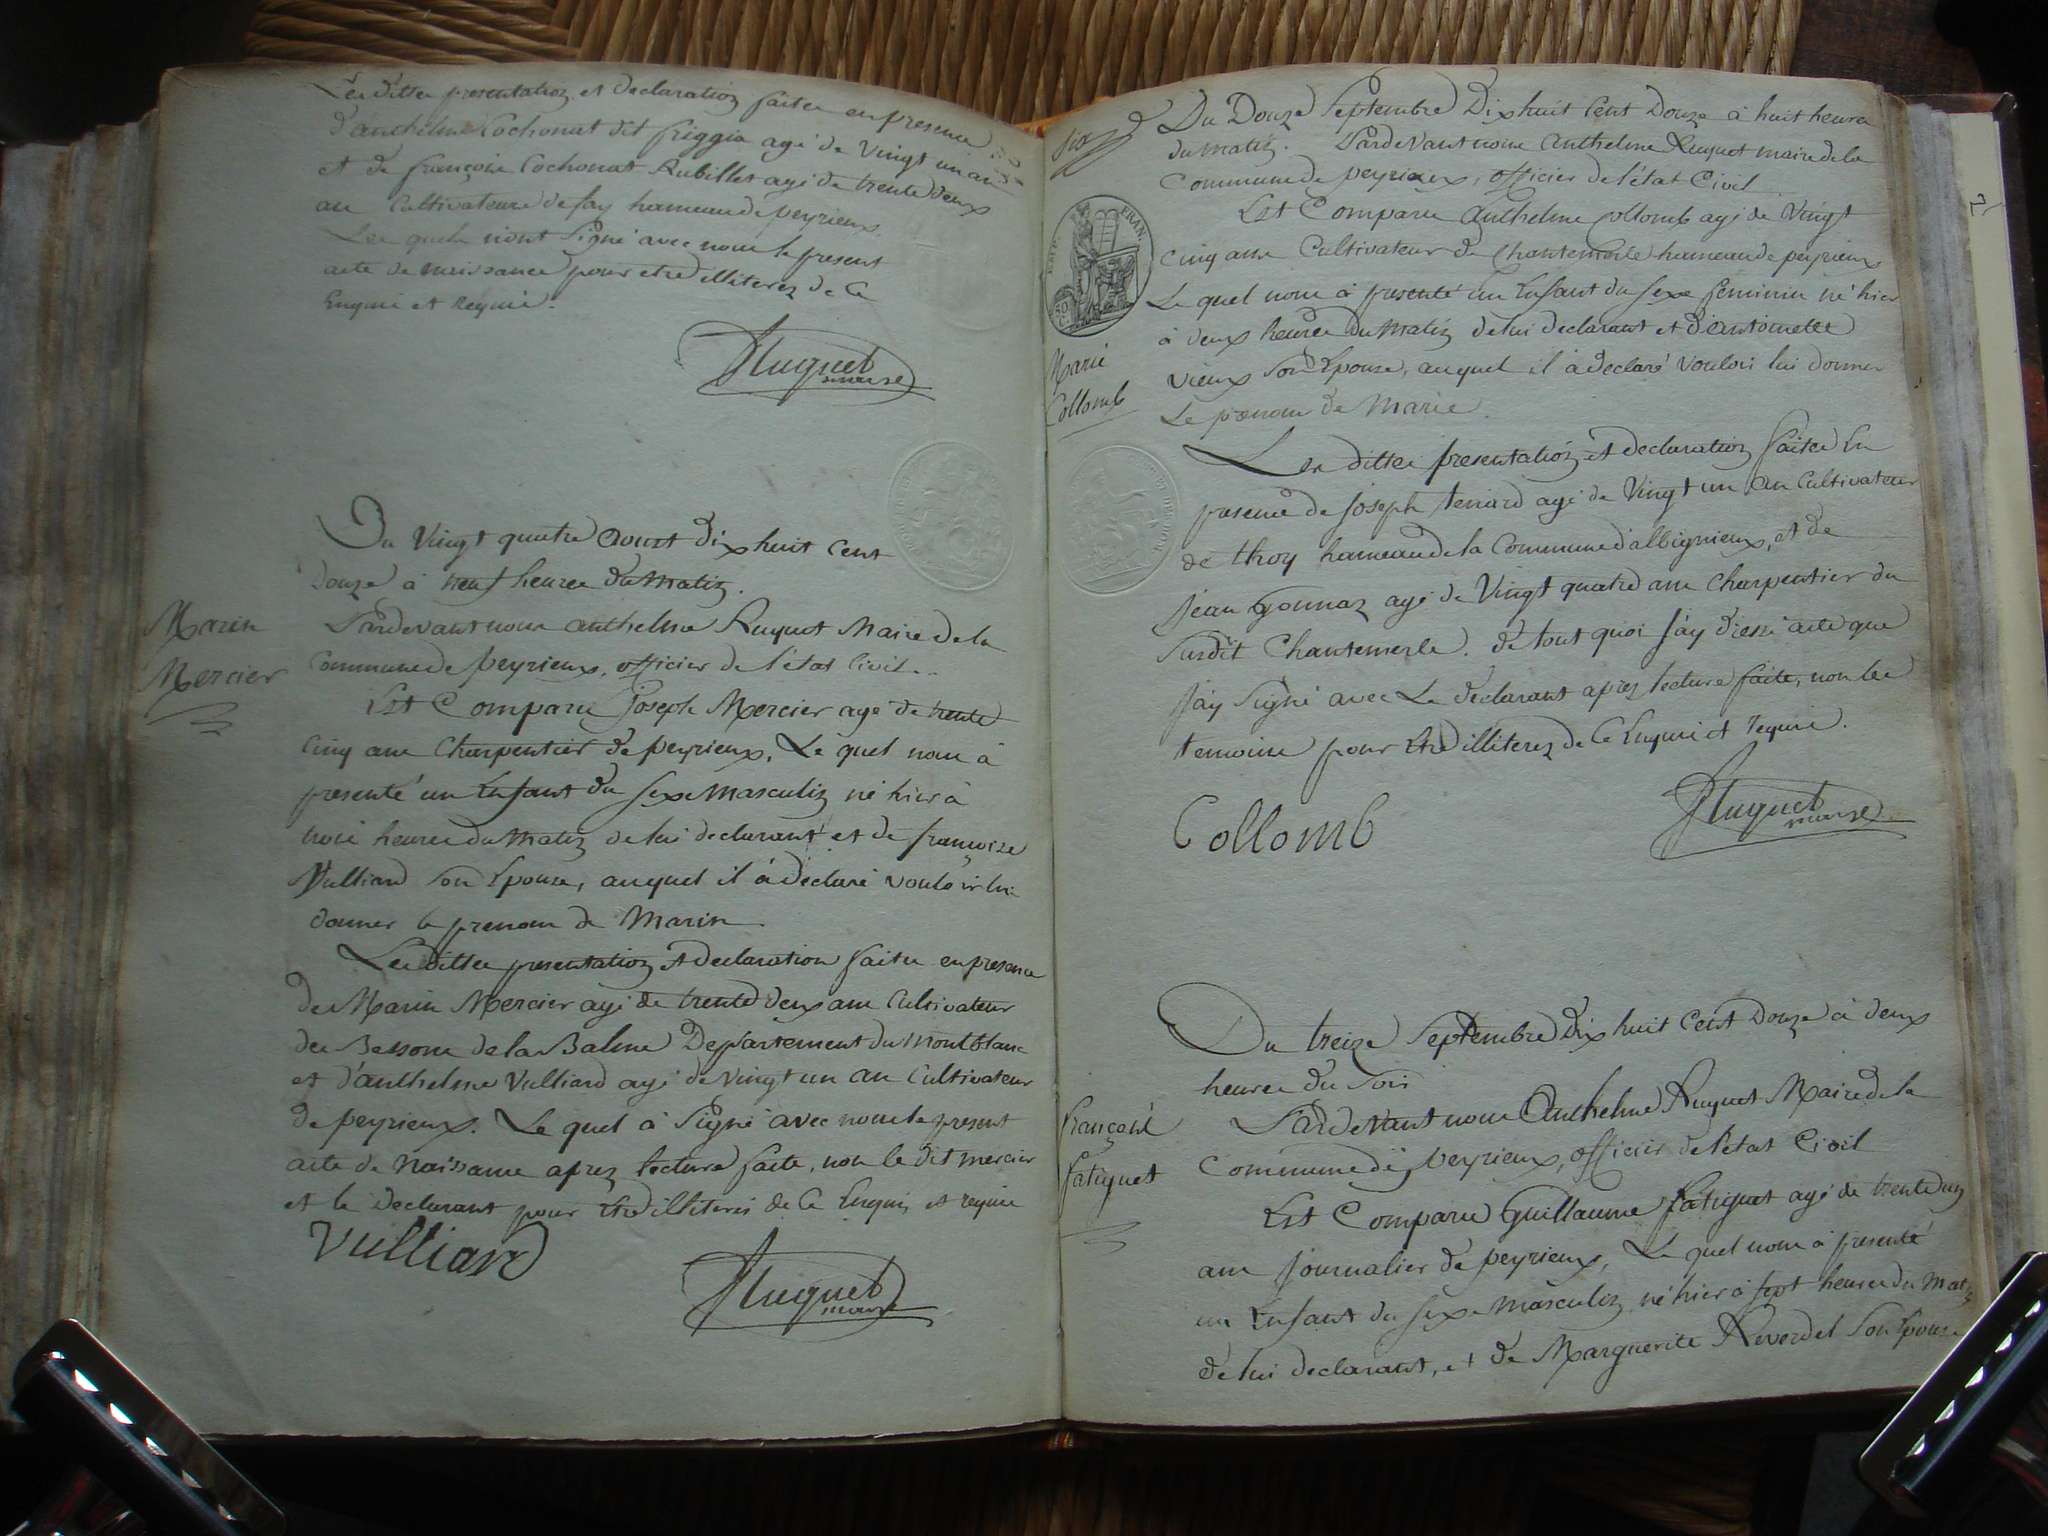 Les dittes presentation et declaration faites en presence
d'anthelme Cochonat dit friggia agé de vingt un ans
et de françois Cochonat Rubillet agé de trente deux
ans Cultivateurs de fay hameau de peyrieux.
Les quels n'ont signé avec nous le present
acte de naissance pour etre illiterez de Ce
Enquis et Requis.
Huguet
maire
Du Vingt quatre Aoust dix huit Cent
Douze à neuf heures du Matin.
Marin
Mercier
Pardevant nous anthelme Huguet Maire de la
Commune de peyrieux, officier de l'état Civil.
Est Comparu Joseph Mercier agé de trente
Cinq ans Charpentier de peyrieux, Le quel nous à
presenté un Enfant du sexe Masculin né hier à
heures du Matin de lui declarant et de françoise
Vulliard son Epouse, auquel il à declaré vouloir lui
donner le prenom de Marin
Les dittes presentation et declaration faites en presence
de Marin Mercier agé de trente deux ans Cultivateur
des Bessons de la Balme Departement du Montblanc
et d'anthelme Vulliard agé de vingt un ans Cultivateur
de peyrieux. Le quel à signé avec nous le present
acte de Naissance aprez lecture faite, non le dit mercier
et le declarant pour etre illiterés de Ce Enquis et requis
Vulliard
Huguet
maire
Du Douze Septembre Dix huit Cent Douze à huit heures
du matin. Pardevant nous Anthelme Huguet maire de la
Commune de peyrieux, officier de l'état Civil
EMP. FRAN.
50
C.
Marie
Collomb
Est Comparu Anthelme Collomb agé de vingt
cinq ans Cultivateur de Chantemerle hameau de peyrieux
Le quel nous à presenté un Enfant du sexe feminin né hier
à deux heures du Matin de lui declarant et d'Antoinette
vieux son Epouse, auquel il à declaré vouloir lui donner
Le prenom de Marie.
Les dittes presentation et declaration faites En
presence de Joseph tenard agé de Vingt un ans Cultivateur
de thoy hameau de la Commune d'albignieux, et de
Jean Gonnaz agé de Vingt quatre ans Charpentier du
Susdit Chantemerle. de tout quoi j'ay dressé acte que
j'ay signé avec Le declarant aprez lecture faite, non les
temoins pour etre illiterez de Ce Enquis et requis.
Collomb
Huguet
maire
Du treize Septembre Dix huit Cent Douze à deux
heures du Soir
françois
fatiguet
Pardevant nous Anthelme Huguet Maire de la
Commune de peyrieux, officier de l'état Civil
Est Comparu Guillaume fatiguet agé de trente
ans journalier de peyrieux, Le quel nous à presenté
un Enfant du sexe masculin né hier à sept heures du Matin
de lui declarant, et de Marguerite Reverdel son Epouse